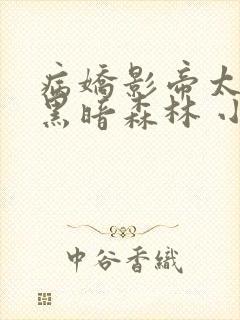 病嬌影帝太
黑暗森林 小
中谷香織